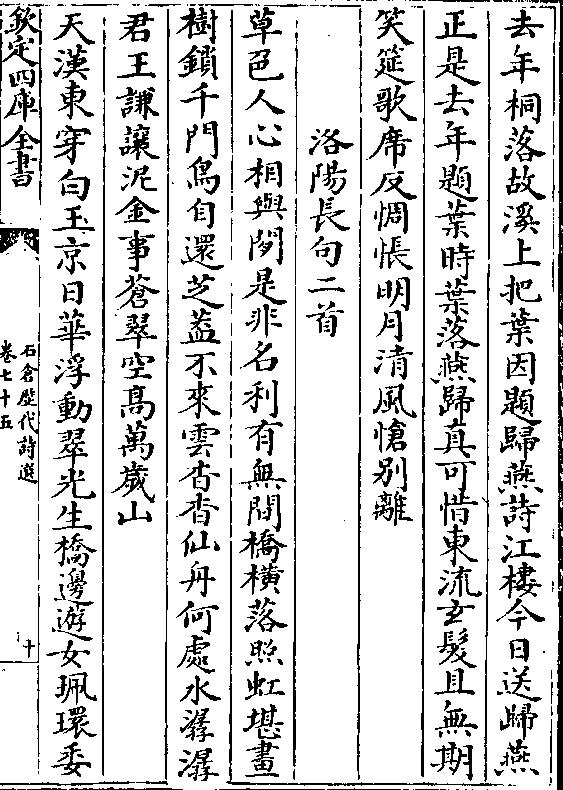 去年桐落故溪上把葉因題歸燕詩江樓今日送歸燕
正是去年題葉時葉落燕歸真可惜東流玄髮且無期
笑筵歌席反惆悵明月清風愴别離
洛陽長句二首
草色人心相與閑是非名利有無間橋橫落照虹堪畫
樹鎖千門鳥自還芝蓋不來雲杳杳仙舟何處水潺潺
君王謙讓泥金事蒼翠空高萬歲山
天漢東穿白玉京日華浮動翠光生橋邊遊女珮環委
欽定四庫全書
石倉歴代詩選
卷七十五
十